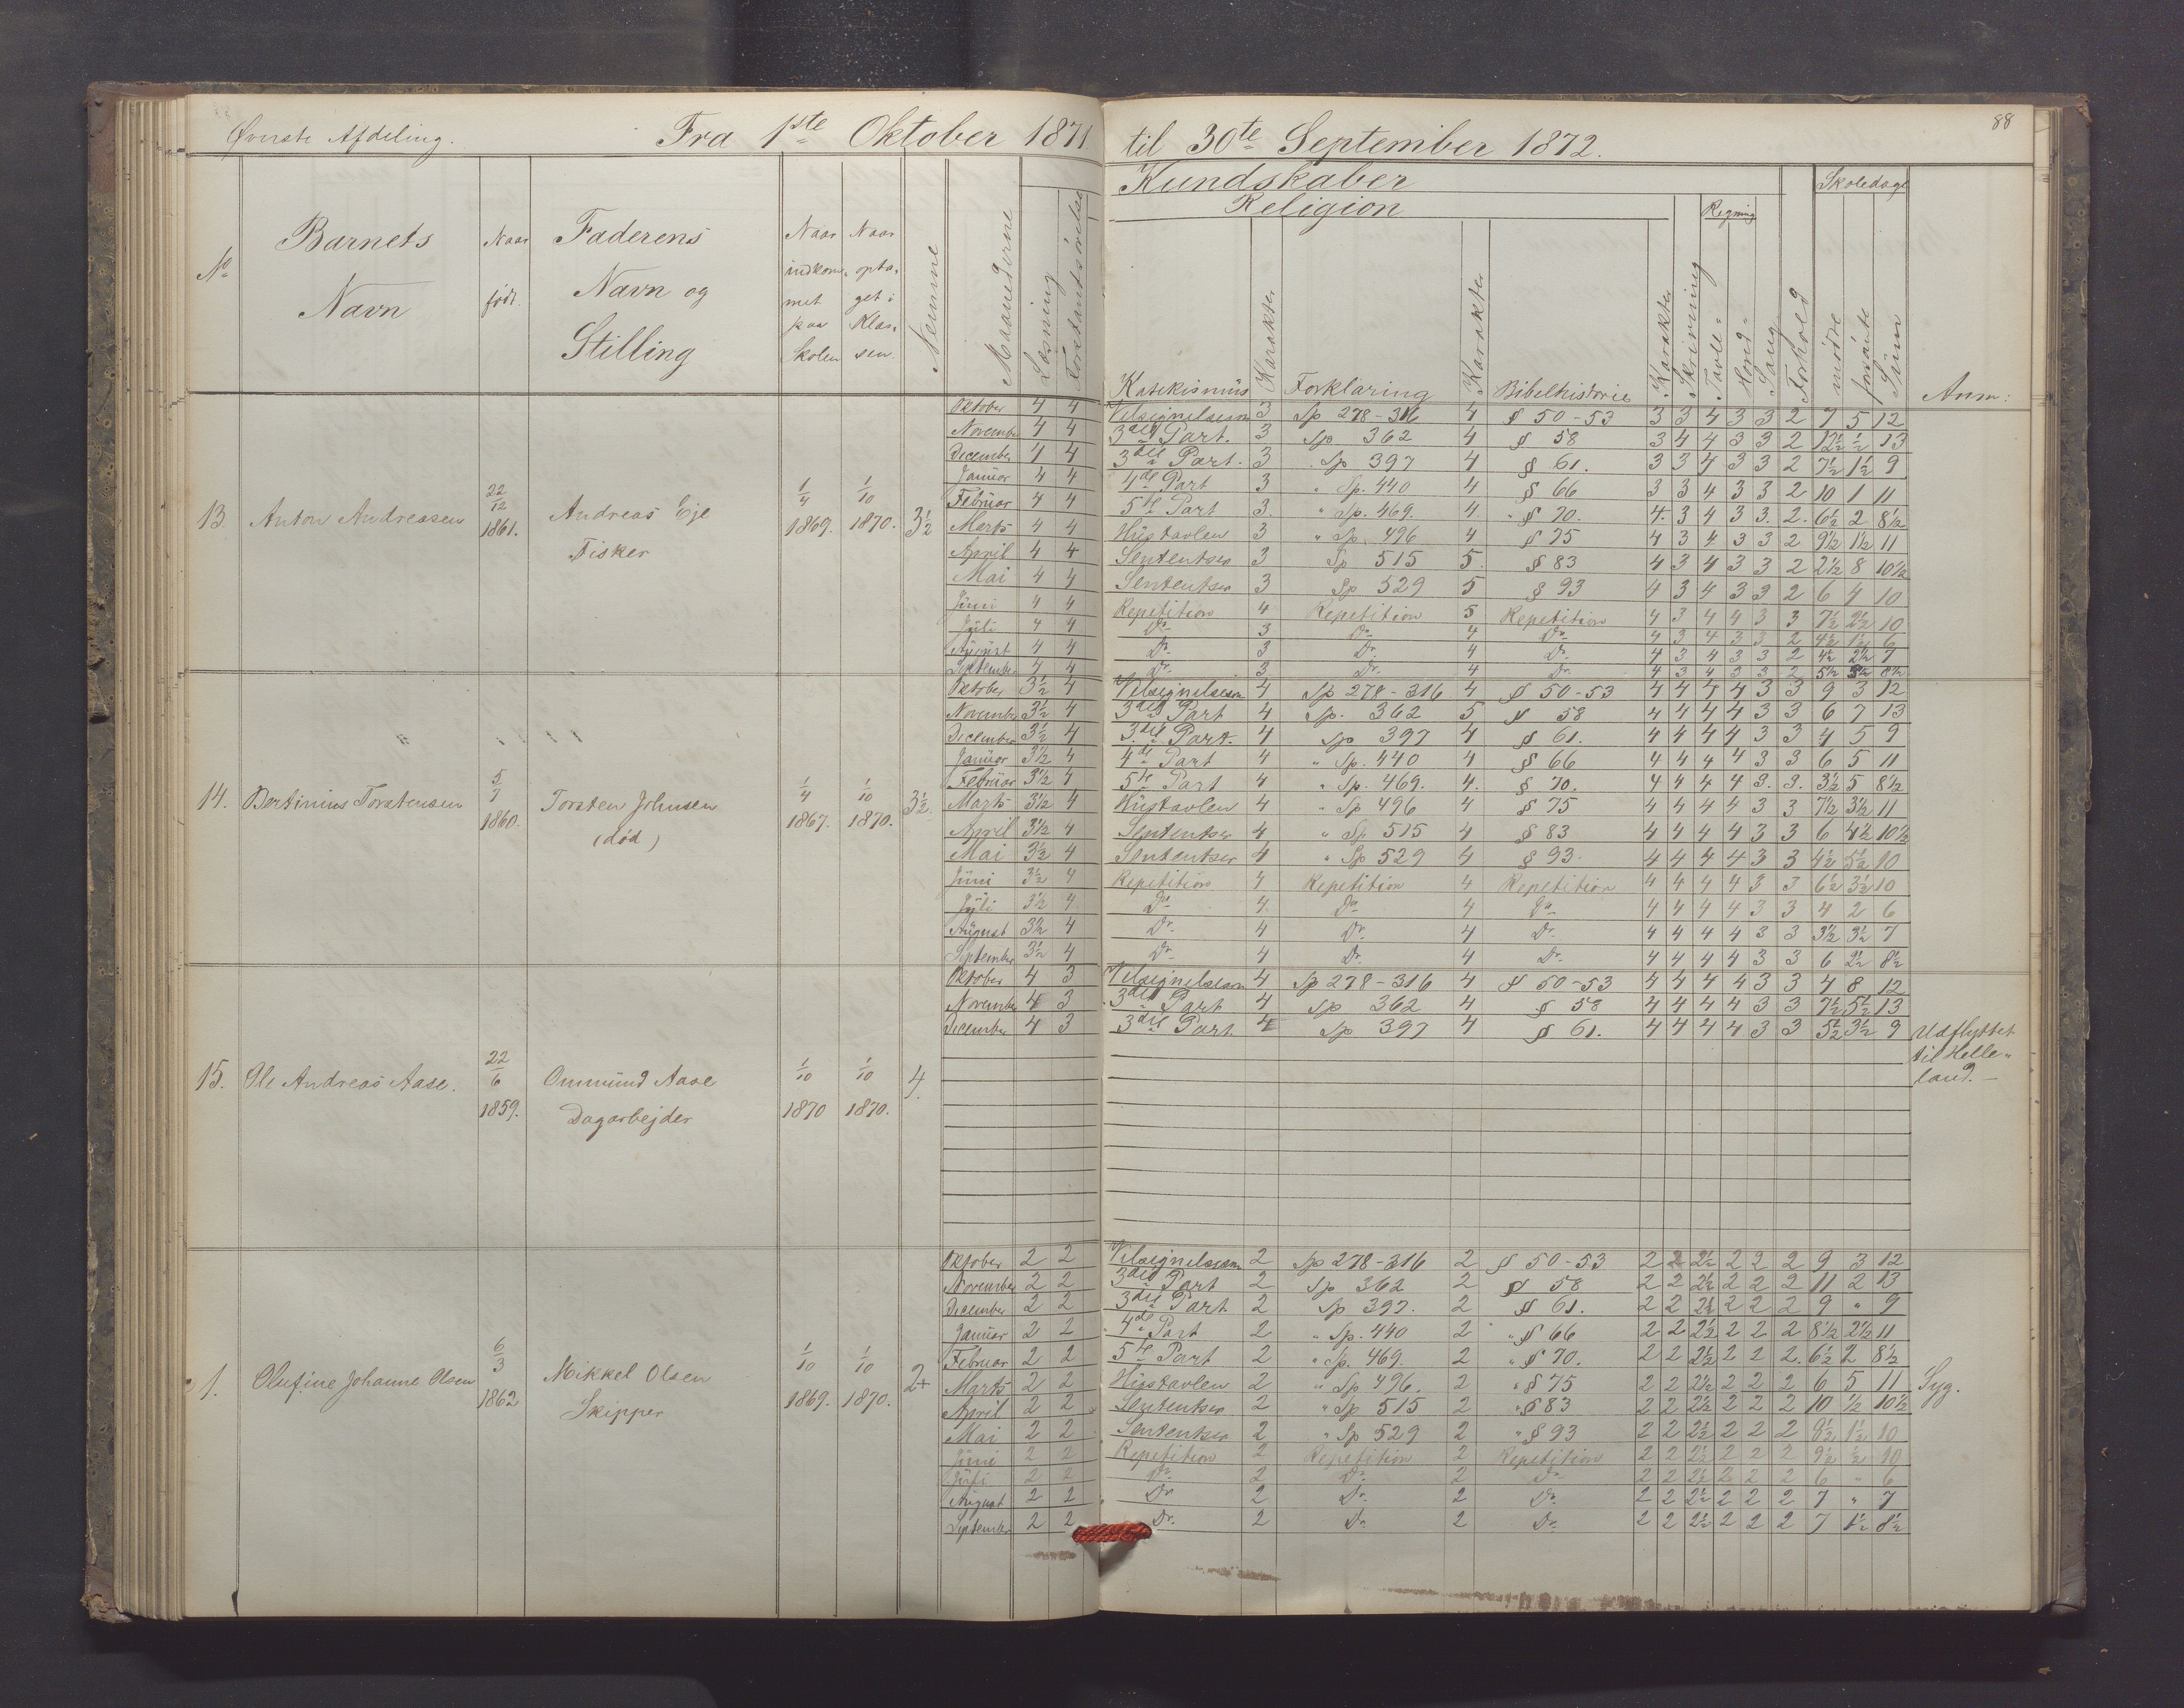 Øverste Afdeling. Fra 1ste Oktober 1871 til 30te September 1872. 88
Kundskaber Skoledage
Religion Regning
No Barnets Navn Naar født. Faderens Navn og Stilling Naar indkommet paa Skolen Naar optaget i Klassen Nemme Maanederne Læsning Forstandsøvelse Katekismus Karakter Forklaring Karakter Bibelhistorie Karakter Skrivning Tavle- Hoved- Sang Forhold mødte forsømte Sum Anm:
13. Anton Andreassen 22/12 1861. Andreas Eje Fisker 1/4 1869. 1/10 1870. 3½
Oktober 4 4 Velsignelsen 3 Sp 278-316 4 § 50-53 3 3 4 3 3 2 7 5 12
November 4 4 3die Part. 3 Sp 362 4 § 58 3 4 4 3 3 2 12½ ½ 13
December 4 4 3die Part. 3 Sp 397 4 § 61. 3 3 4 3 3 2 7½ 1½ 9
Januar 4 4 4de Part 3 " Sp. 440 4 § 66 3 3 4 3 3 2 10 1 11
Februar 4 4 5te Part 3. " Sp. 469. 4 " § 70. 4. 3 4 3 3. 2. 6½ 2 8½
Marts 4 4 Hustavlen 3 " Sp. 496 4 § 75 4 3 4 3 3 2 9½ 1½ 11
April 4 4 Sententser 3 Sp 515 5. § 83 4 3 4 3 3 2 2½ 8 10½
Mai 4 4 Sententser 3 Sp 529 5 § 93 4 3 4 3 3 2 6 4 10
Juni 4 4 Repetition 4 Repetition 5 Repetition 4 3 4 4 3 3 7½ 2½ 10
Juli 4 4 Do 3 Do 4 Do 4 3 4 3 3 2 4½ 1½ 6
August 4 4 Do. 3 Do. 4 Do. 4 3 4 3 3 2 4½ 2½ 7
September 4 4 Do. 3 Do. 4 Do. 4 3 4 3 3 2 5½ 8½
14. Bertinius Torstensen 1860. Torsten Johnsen (død) 1/4 1867. 1/10 1870. 3½.
Oktober 3½ 4 Velsignelsen 4 Sp 278-316 4 § 50-53 4 4 4 4 3 3 9 3 12
November 3½ 4 3die Part 4 Sp. 362 5 § 58 4 4 4 4 3 3 6 7 13
December 3½ 4 3die Part. 4 Sp 397 4 § 61. 4 4 4 4 3 3 4 5 9
Januar 3½ 4 4de Part 4 " Sp. 440 4 § 66 4 4 4 4 3 3 6 5 11
Februar 3½ 4 5te Part 4 " Sp. 469. 4. § 70. 4 4 4 4 3. 3. 3½ 5 8½
Marts 3½ 4 Hustavlen 4 " Sp 496 4 § 75 4 4 4 4 3 3 7½ 3½ 11
April 3½ 4 Sententser 4 " Sp 515 4 § 83 4 4 4 4 3 3 6 4½ 10½
Mai 3½ 4 Sententser 4 " Sp 529 4 § 93. 4 4 4 4 3 3 4½ 5½ 10
Juni 3½ 4 Repetition 4 Repetition 4 Repetition 4 4 4 4 3 3 6½ 3½ 10
Juli 3½ 4 Do 4 Do 4 Do 4 4 4 4 3 3 4 2 6
August 3½ 4 Do. 4 Do. 4 Do. 4 4 4 4 3 3 3½ 3½ 7
September 3½ 4 Do. 4 Do. 4 Do. 4 4 4 4 3 3 6 2½ 8½
15. Ole Andreas Aase. 22/6 1859. Ommund Aase Dagarbejder 1/10 1870 1/10 1870. 4.
Oktober 4 3 Velsignelsen 4 Sp 278-316 4 § 50-53 4 4 4 4 3 3 4 8 12
November 4 3 3die Part 4 Sp 362 4 § 58 4 4 4 4 3 3 7½ 5½ 13
December 4 3 3die Part. 4 Sp 397 4 § 61. 4 4 4 4 3 3 5½ 3½ 9 Udflyttet
til Helle-
land.
1. Olufine Johanne Olsen 6/3 1862 Mikkel Olsen Skipper 1/10 1869. 1/10 1870. 2+
Oktober 2 2 Velsignelsen 2 Sp 278-316 2 § 50-53 2 2 2½ 2 2 2 9 3 12
November 2 2 3die Part 2 Sp 362 2 § 58 2 2 2½ 2 2 2 11 2 13
December 2 2 3die Part 2 Sp 397. 2 § 61. 2 2 2½ 2 2 2 9 " 9
Januar 2 2 4de Part 2 " Sp. 440 2 " § 66 2 2 2½ 2 2 2 8½ 2½ 11
Februar 2 2 5te Part 2 " Sp. 469. 2 " § 70. 2 2 2½ 2 2 2. 6½ 2 8½
Marts 2 2 Hustavlen 2 " Sp 496. 2 " § 75 2 2 2½ 2 2 2 6 5 11 Syg.
April 2 2 Sententser 2 " Sp 515 2 " § 83 2 2 2½ 2 2 2 10 ½ 10½
Mai 2 2 Sententser 2 " Sp 529 2 " § 93 2 2 2½ 2 2 2 8½ 1½ 10
Juni 2 2 Repetition 2 Repetition 2 Repetition 2 2 2½ 2 2 2 9½ ½ 10
Juli 2 2 Do 2 Do. 2 Do. 2 2 2½ 2 2 2 6 " 6
August 2 2 Do 2 Do. 2 Do. 2 2 2½ 2 2 2 7 " 7
September 2 2 Do. 2 Do. 2 Do. 2 2 2½ 2 2 2 7 1½ 8½